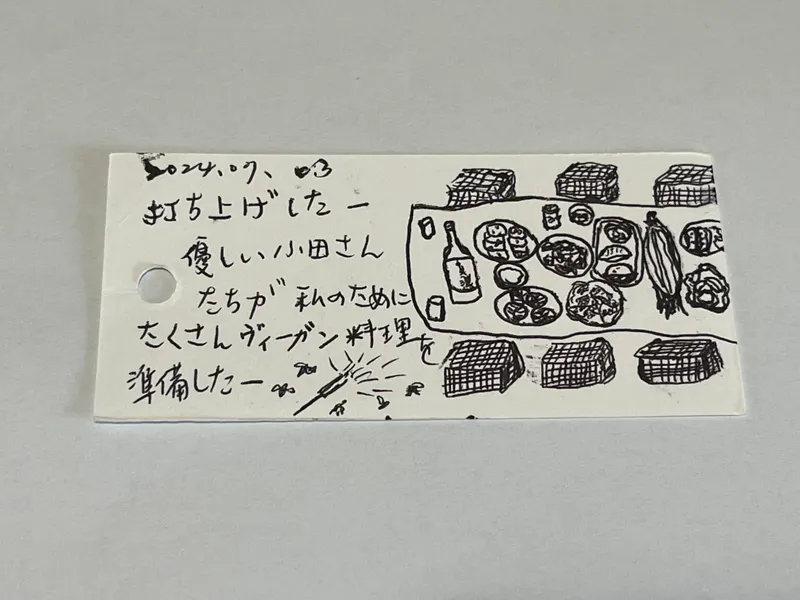 2024.07.03
打ち上げしたー
優しい小田さん
たちが私のために
たくさんヴィーガン料理を
準備したー